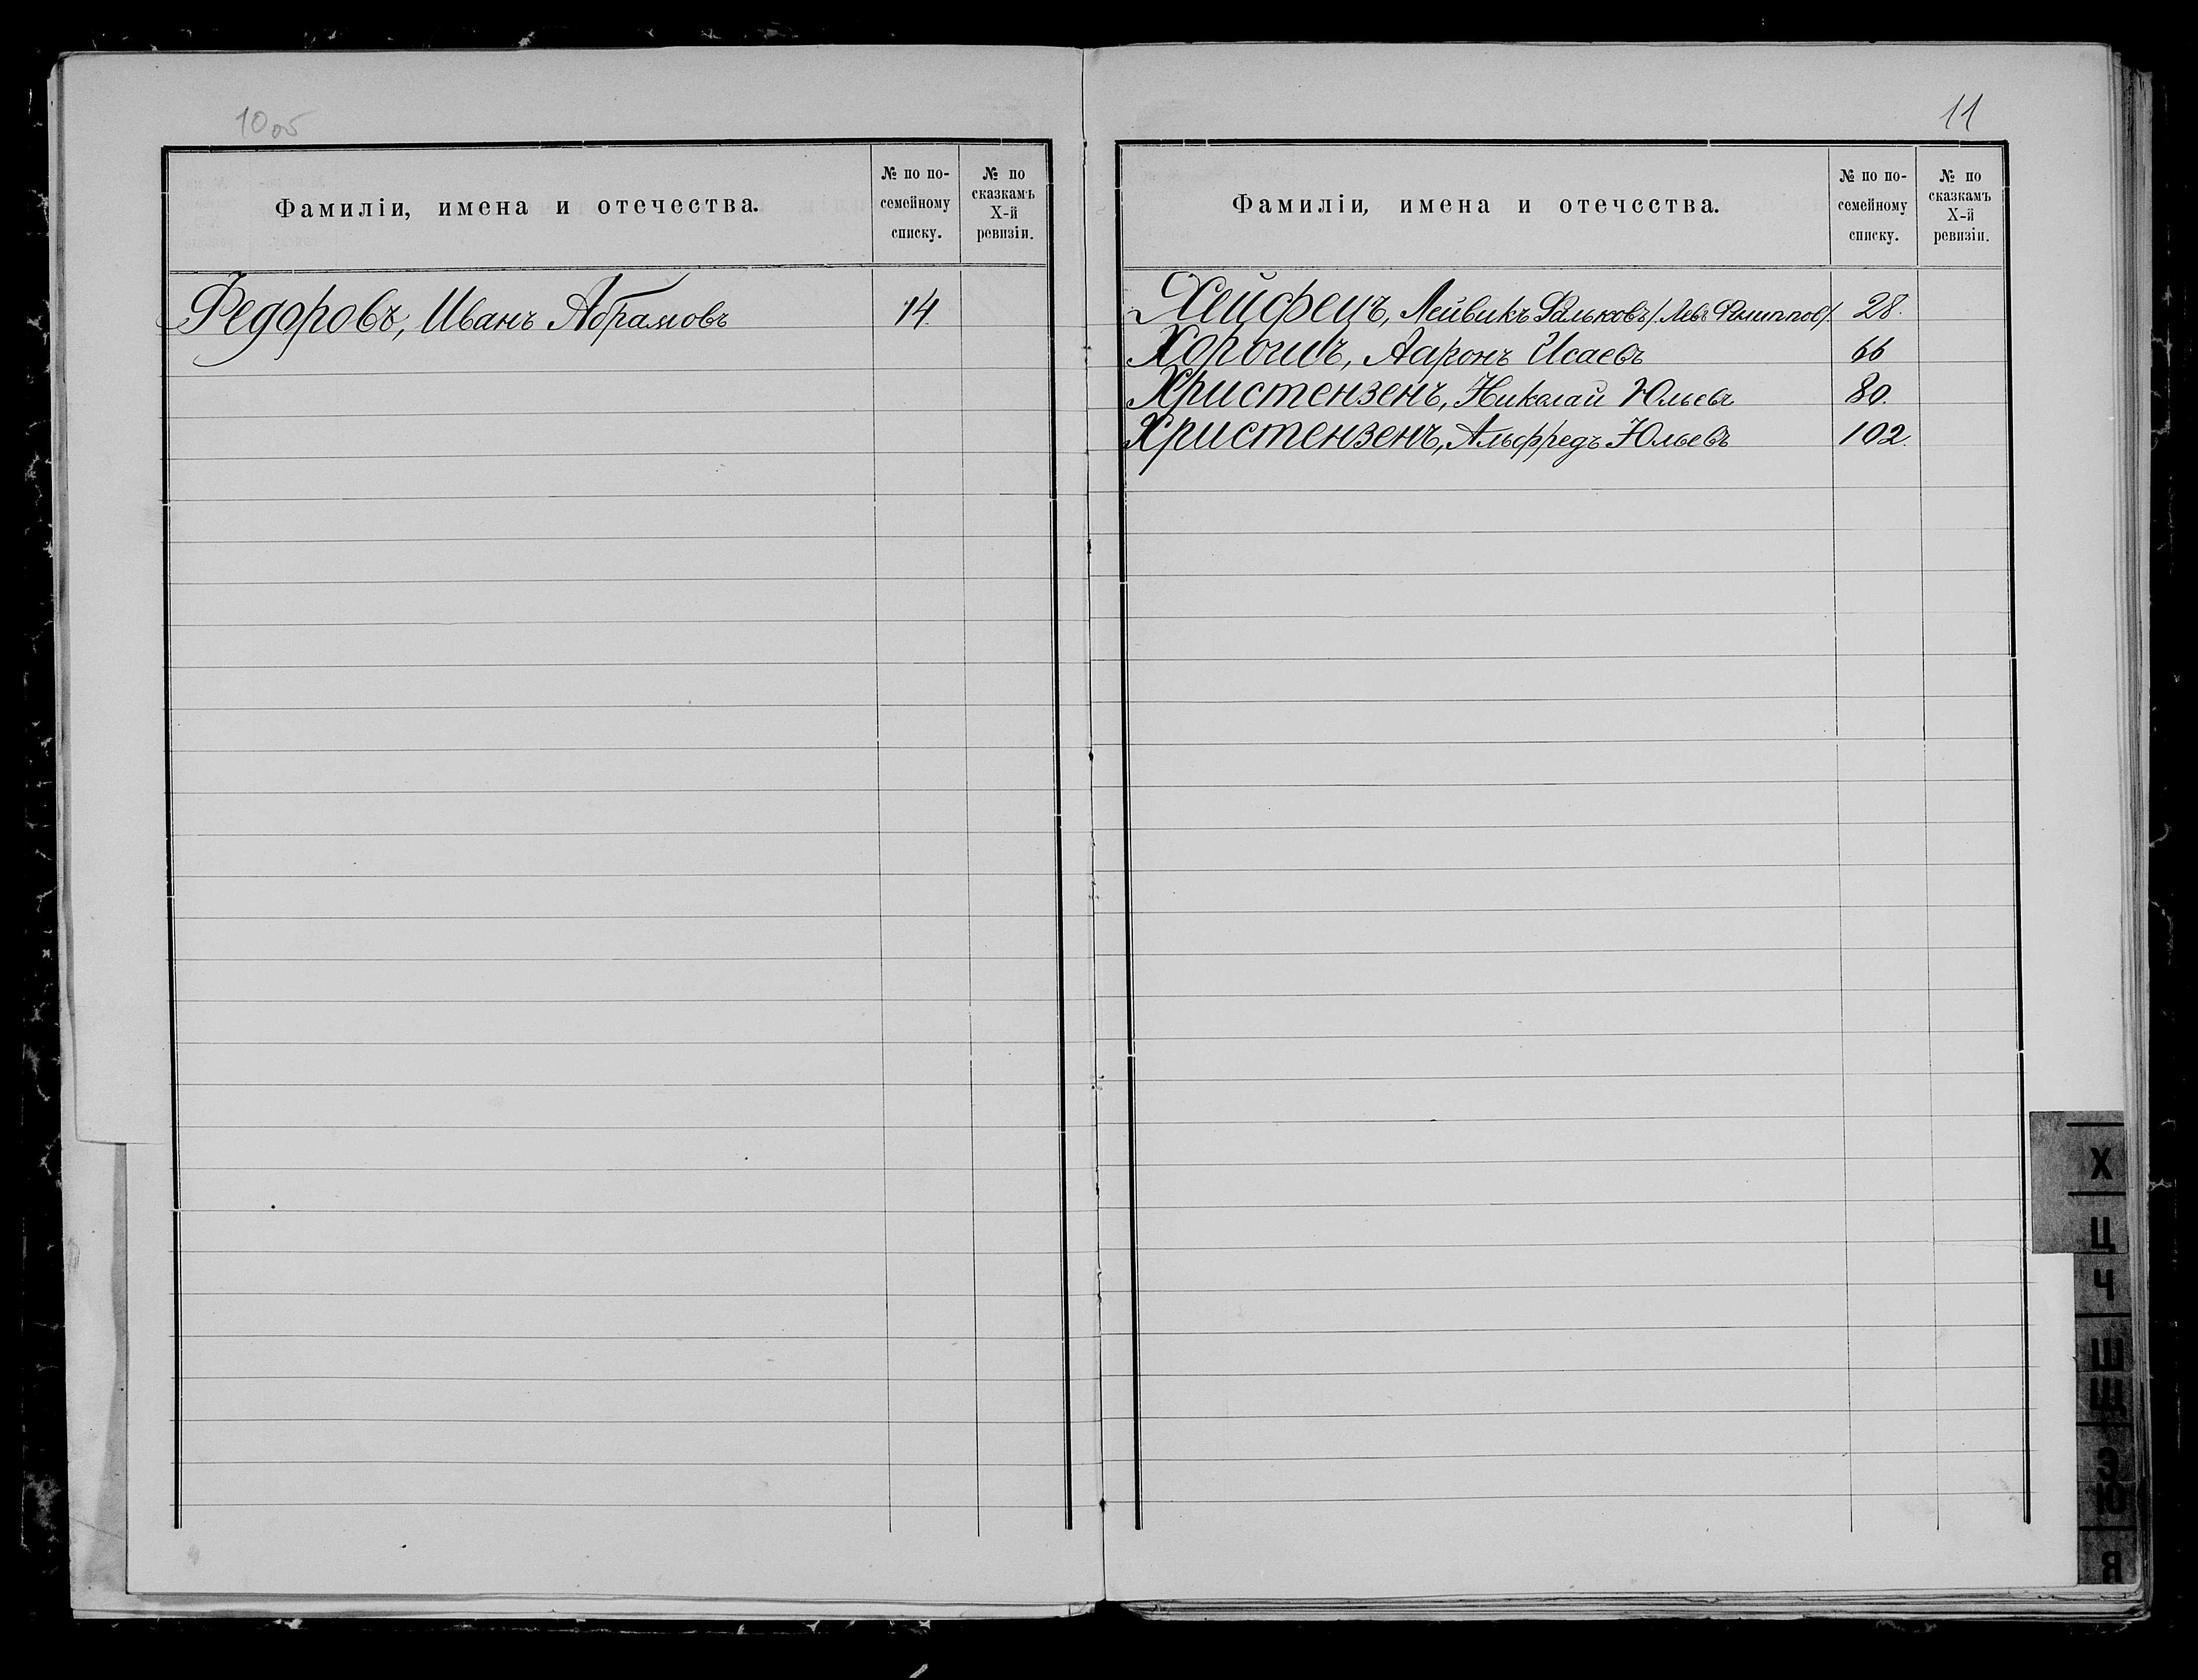 10 об
Фамиліи, имена и отечества.
№ по по-
семейному
списку.
№ по
сказкамъ
Х-й
ревизіи.
Федоровъ, Иванъ Абрамовъ 14.
11
Фамиліи, имена и отечества.
№ по по-
семейному
списку.
№ по
сказкамъ
Х-й
ревизіи.
Хейфецъ, Лейвикъ Фальковъ /Левъ Филиппов/. 28.
Ааронъ Исаевъ 66
Христензенъ, Николай Юльевъ 80.
Христензенъ, Альфредъ Юльевъ 102.
Х
Ц
Ч
Ш
Щ
Э
Ю
Я